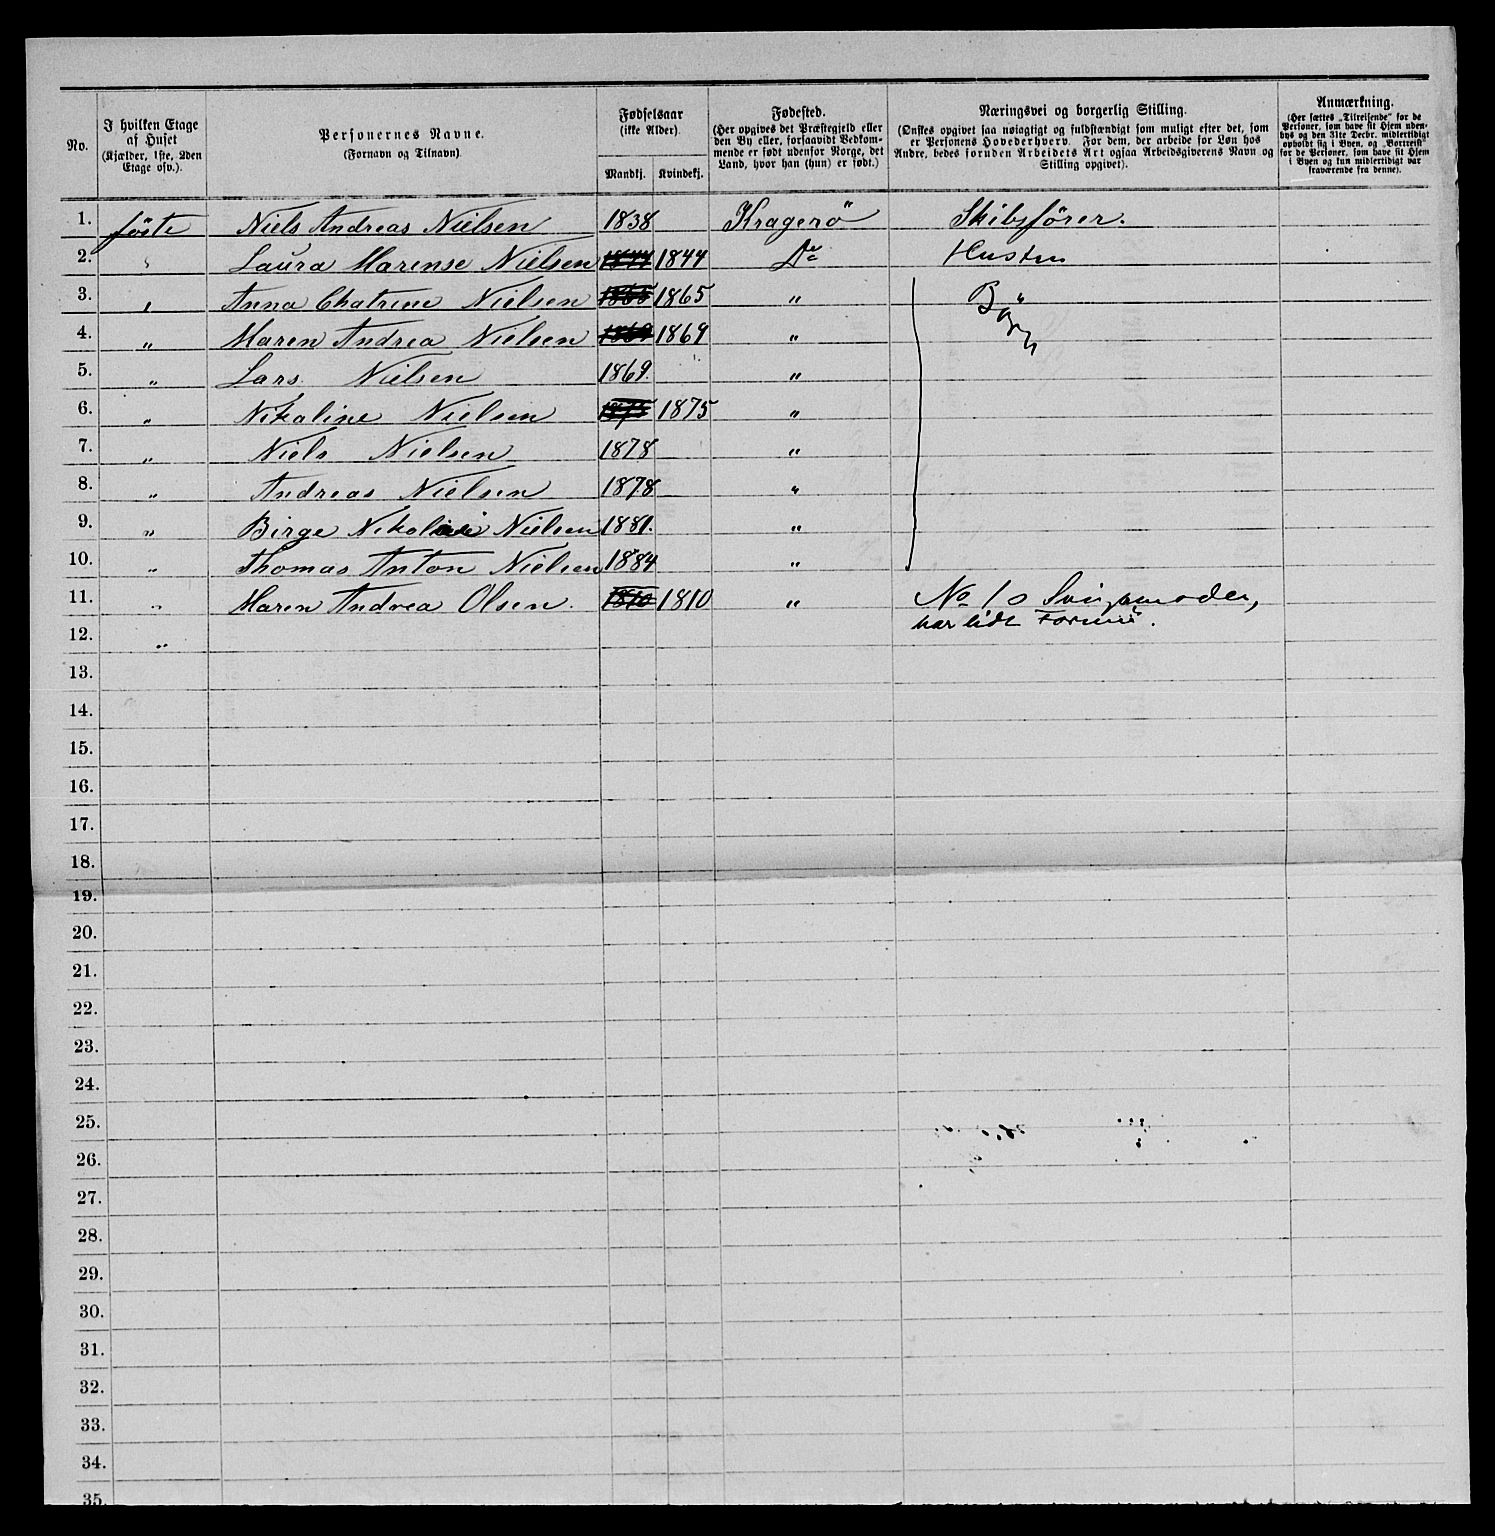 No.
I hvilken Etage
af Huset
(Kjælder, 1ste, 2den
Etage osv.).
Personernes Navne.
(Fornavn og Tilnavn)
Fødselsaar
(ikke Alder).
Mandkj. Kvindekj.
Fødested.
(Her opgives det Præstegjeld eller
den By eller, forsaavidt Vedkom-
mende er født udenfor Norge, det
Land, hvor han (hun) er født.)
Næringsvei og borgerlig Stilling.
(Ønskes opgivet saa nøiagtigt og fuldstændigt som muligt efter det, som
er Personens Hovederhverv. For dem, der arbeide for Løn hos
Andre, bedes foruden Arbeidets Art ogsaa Arbeidsgiverens Navn og
Stilling opgivet).
Anmærkning.
(Her sættes „Tilreisende“ for de
Personer, som have sit Hjem uden-
bys og den 31te Decbr. midlertidigt
opholdt sig i Byen, og „Bortreist“
for de Personer, som have sit Hjem
i Byen og kun midlertidigt var
fraværende fra denne).
1. føste Niels Andreas Nielsen 1838 Kragerö Skibsfører.
2. " Laura Marense Nielsen 1844 1844 Do Hustru
3. " Anna Chatrine Nielsen 1865 1865 " Børn
4. " Maren Andrea Nielsen 1869 1869 "
5. " Lars Nielsen 1869. "
6. " Nikoline Nielsen 1875 1875 "
7. " Niels Nielsen 1878 "
8. " Andreas Nielsen 1878 "
9. " Birge Nielsen 1881. "
10. " Thomas Anton Nielsen 1884 "
11. " Maren Andrea Olsen. 1810 1810 " No 10 Svigermoder,
har lidt Formue.
12. "
13.
14.
15.
16.
17.
18.
19.
20.
21.
22.
23.
24.
25.
26.
27.
28.
29.
30.
31.
32.
33.
34.
35.